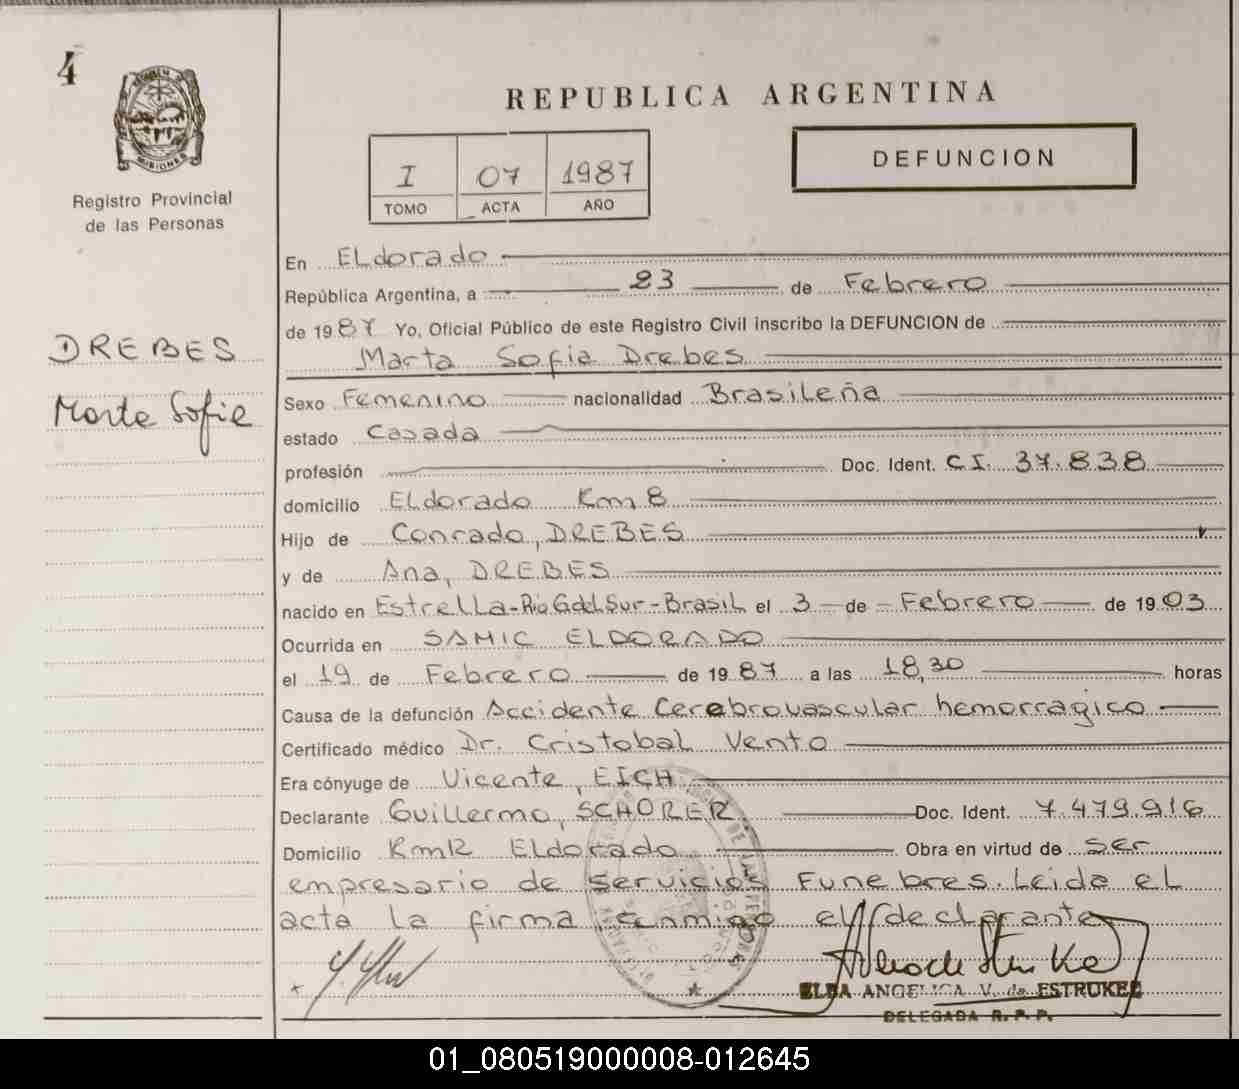 4
MISIONES
Registro Provincial
de las Personas
DREBES
Marta Sofia
REPUBLICA ARGENTINA
I 07 1987
TOMO ACTA AÑO
DEFUNCION
En ELdorado
República Argentina, a 23 de Febrero
de 1987 Yo, Oficial Público de este Registro Civil inscribo la DEFUNCION de
Marta Sofia Drebes
Sexo Femenino nacionalidad BrasiLeña
estado Casada
profesión Doc. Ident. C.I. 37.838
domicilio ELdorado Km 8
Hijo de Conrado, DREBES
y de Ana, DREBES
nacido en EstreLLa-Rio G.deL Sur-BrasiL el 3 de Febrero de 1903
Ocurrida en SAMIC ELDORADO
el 19 de Febrero de 1987 a las 18,30 horas
Causa de la defunción Accidente Cerebrovascular hemorragico
Certificado médico Dr. CristobaL Vento
Era cónyuge de Vicente, EICH
Declarante GuiLLermo, SCHORER Doc. Ident. 7.479.916
Domicilio ELdorado Obra en virtud de ser
empresario de servicios Funebres. Leida el
acta La firma conmigo el declarante
ELDA ANGELICA V. de ESTRUKEL
DELEGADA R. P. P.
01_080519000008-012645